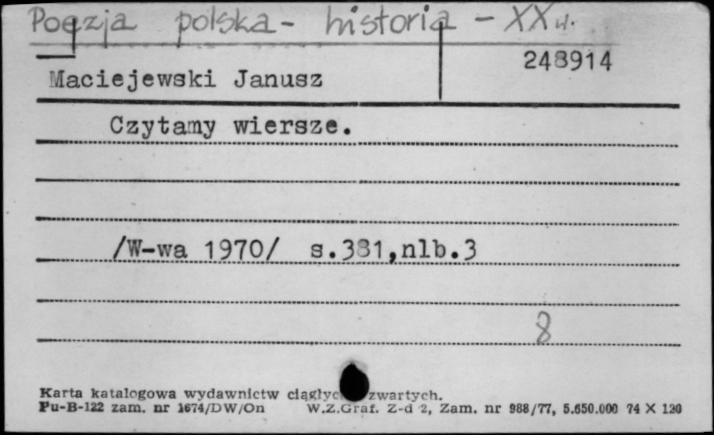 Poezja polska - historia - XX w.
248914
Maciejewski Janusz
Czytamy wiersze.
/W-wa 1970/ s.381,nlb.3
8
Karta katalogowa wydawnictw zwartych.
Pu-B-122 zam. nr 1674/DW/On W.Z.Graf. Z-d 2, Zam. nr 988/77, 5.650.000 74 X 120